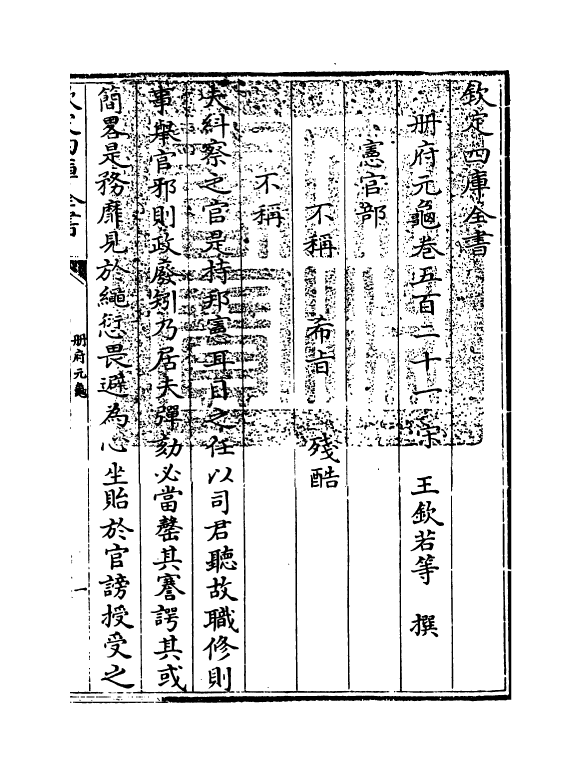 欽定四庫全書
冊府元龜卷五百二十一 宋 王欽若等 撰
憲官部
不稱 希旨 殘酷
不稱
夫糾察之官是持邦憲耳目之任以司君聽故職修則
事舉官邪則政廢矧乃居夫彈劾必當罄其謇諤其或
簡畧是務靡見於繩愆畏避為心坐貽於官謗授受之
欽定四庫全書
冊府元龜
一